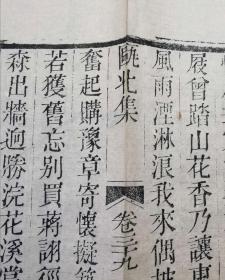 屐曾踏山花香乃讓
風雨湮淋浪我來偶
甌北集
卷三九
奮起購豫章寄懷擬
若獲舊忘别買蔣詡徑
森出牆迥勝浣花溪